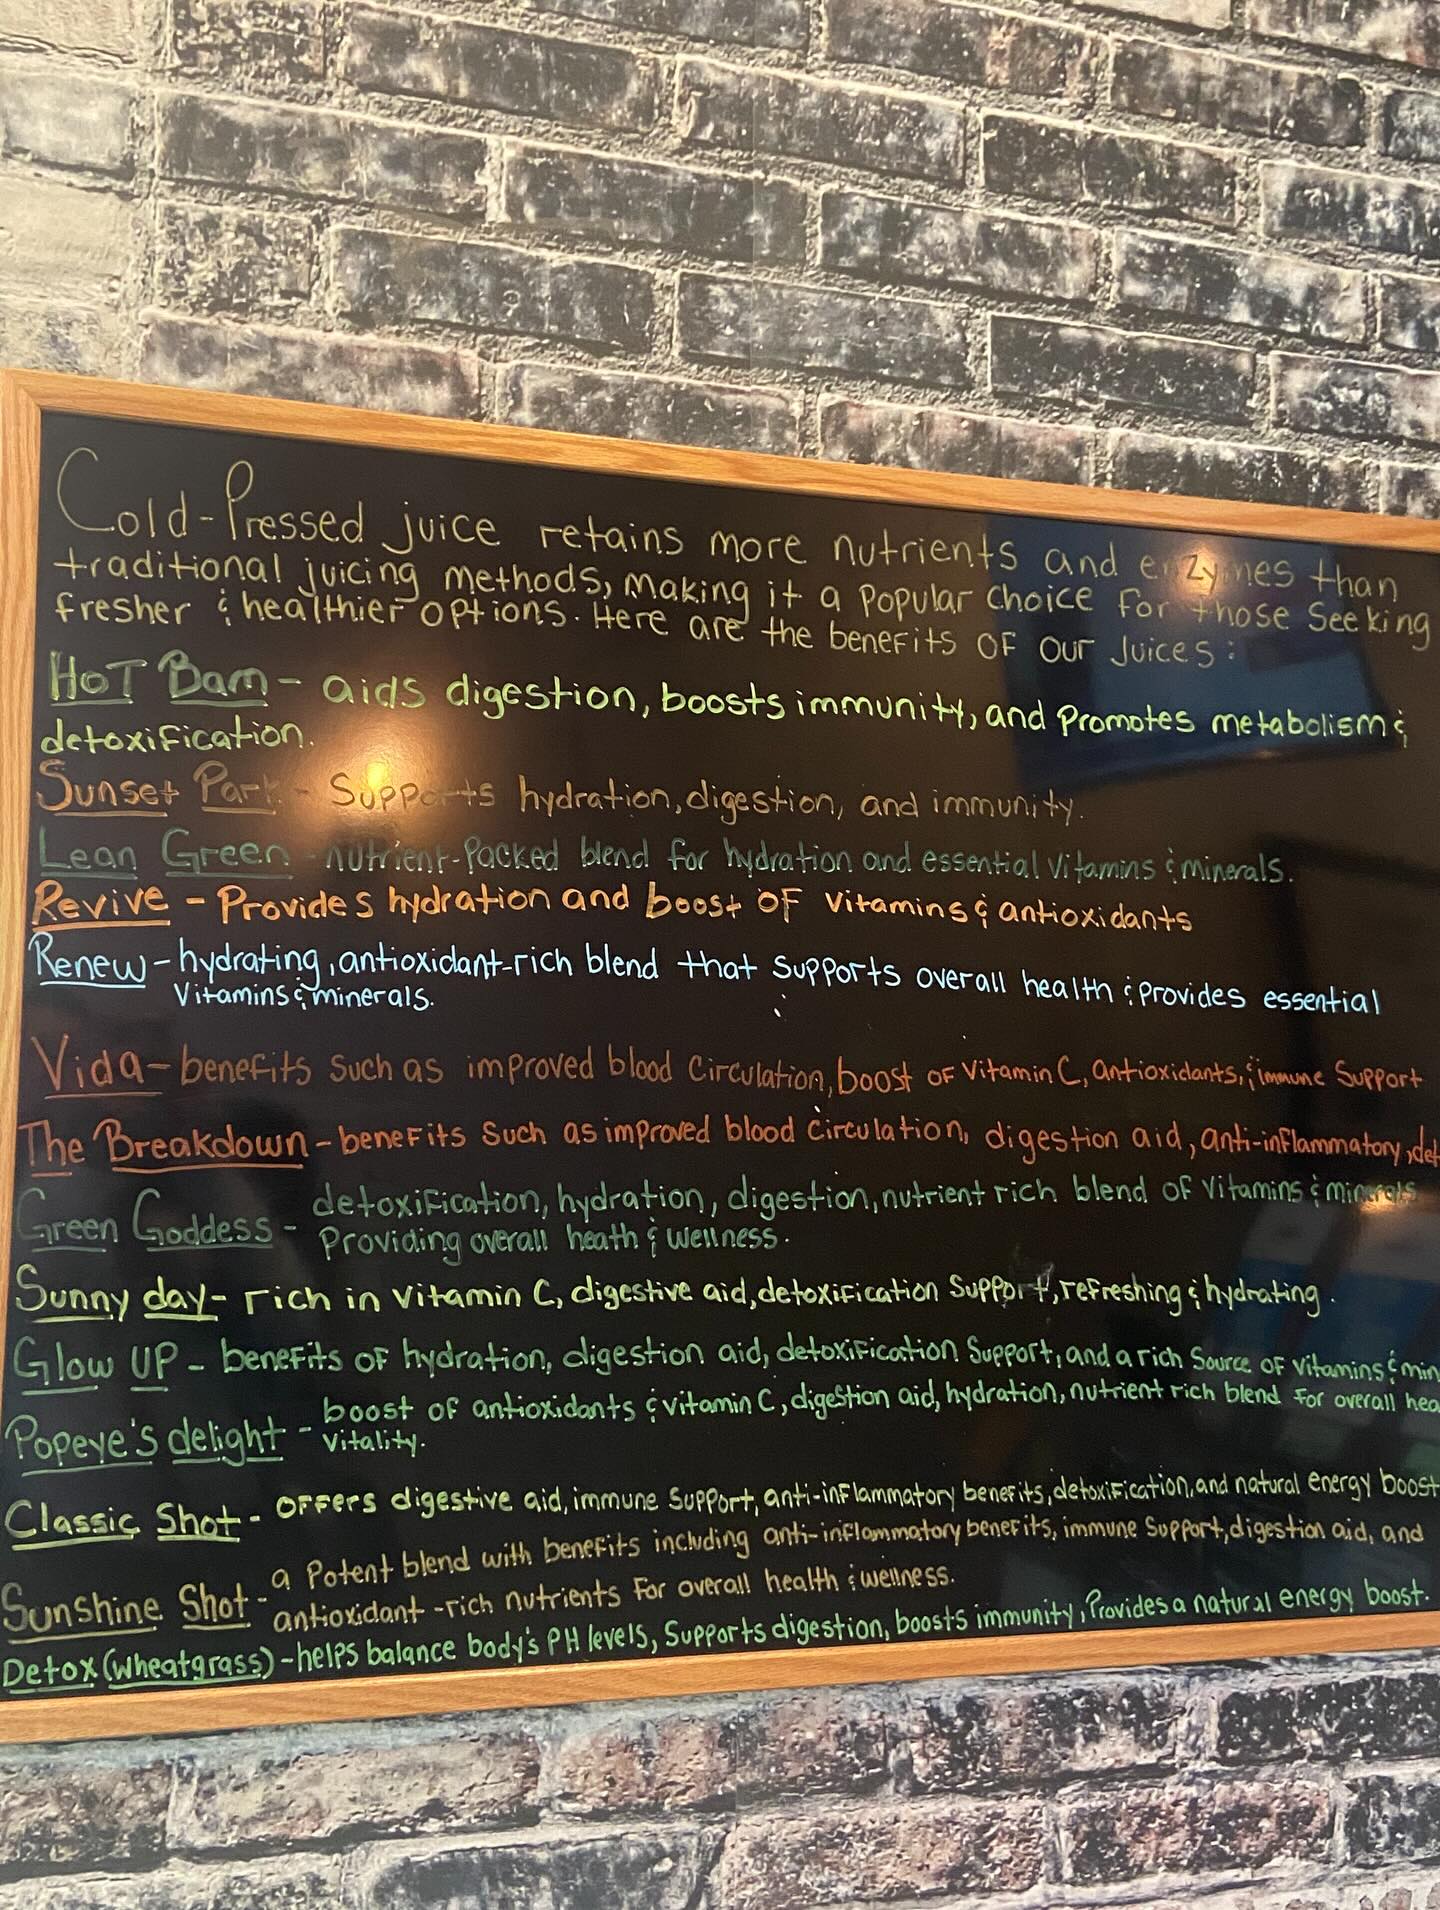 Cold-Pressed juice retains more nutrients and enzymes than
traditional juicing methods, making it a popular choice for those seeking
fresher & healthier options. Here are the benefits of our juices:
Hot Bam - aids digestion, boosts immunity, and promotes metabolism &
detoxification.
Sunset Park - Supports hydration, digestion, and immunity.
Lean Green - nutrient-packed blend for hydration and essential vitamins & minerals.
Revive - Provides hydration and boost of vitamins & antioxidants
Renew - hydrating, antioxidant-rich blend that supports overall health & provides essential
vitamins & minerals.
Vida - benefits such as improved blood circulation, boost of vitamin C, antioxidants, & immune support
The Breakdown - benefits such as improved blood circulation, digestion aid, anti-inflammatory, det
Green Goddess - detoxification, hydration, digestion, nutrient rich blend of vitamins & minerals
Providing overall heath & wellness.
Sunny day - rich in vitamin C, digestive aid, detoxification support, refreshing & hydrating.
Glow Up - benefits of hydration, digestion aid, detoxification support, and a rich source of vitamins & min
Popeye's delight - boost of antioxidants & vitamin C, digestion aid, hydration, nutrient rich blend for overall hea
vitality.
Classic Shot - offers digestive aid, immune support, anti-inflammatory benefits, detoxification, and natural energy boost
Sunshine Shot - a potent blend with benefits including anti-inflammatory benefits, immune support, digestion aid, and
antioxidant-rich nutrients for overall health & wellness.
Detox (wheatgrass) - helps balance body's PH levels, supports digestion, boosts immunity, Provides a natural energy boost.